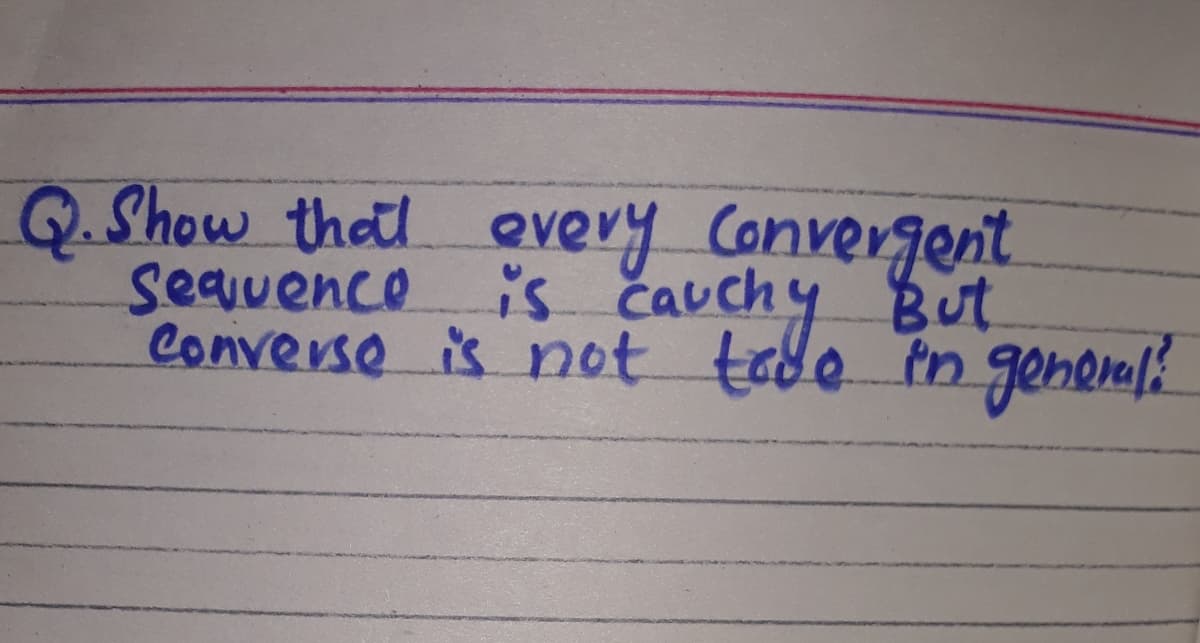 Q. Show that every Convergent
Sequence is Cauchy But
Converse is not true in general?